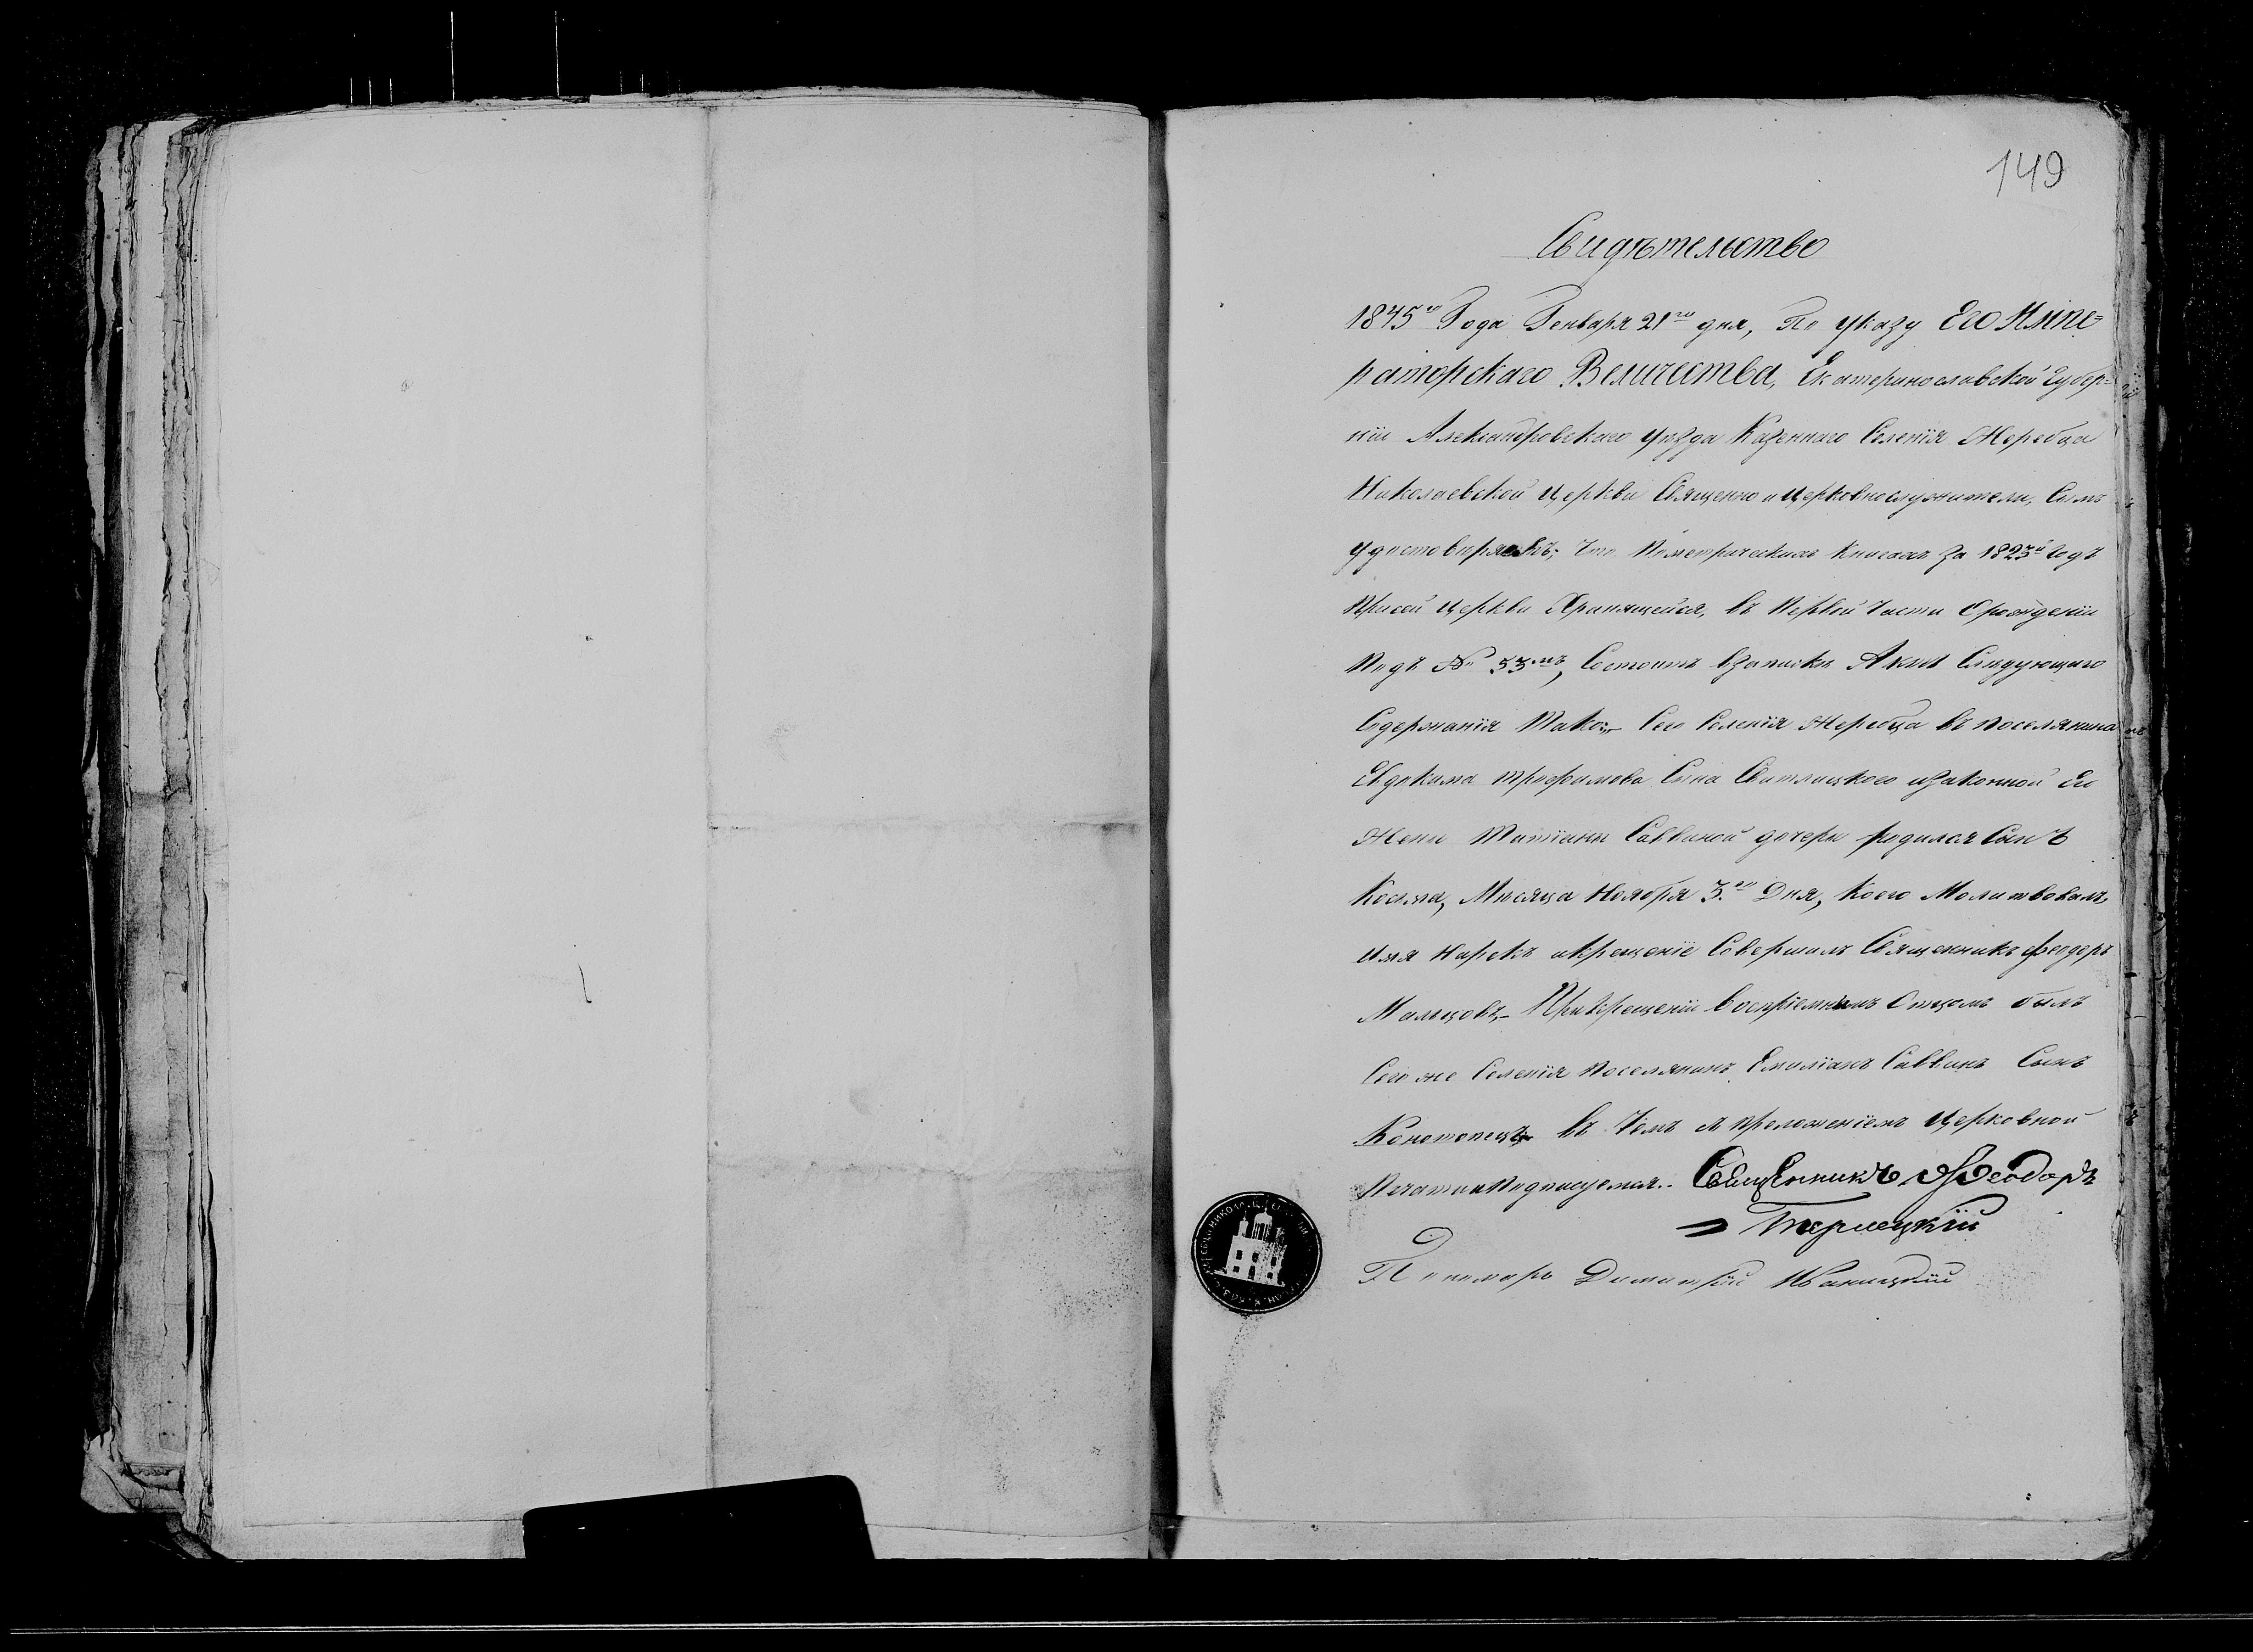 149
Свидѣтельство
1845го Года Генваря 21го дня, По указу Его Импе=
раторскаго Величества, Екатеринославской Губер=
нїи Александровскаго уѣзда Казеннаго Селенїя Жеребца
Николаевской Церкви Священно и Церковнослужители, Симъ
удостовѣряемъ; Что Пометрическимъ Книгамъ За 1823й Годъ
Присей Церкви Хранящейся, въ Первой Части Орожденїи
Подъ № 53мъ, Состоитъ взаписки Актъ Слѣдующаго
Содержанїя Тако: Сего Селенїя Жеребца въ Поселянина
Евдокима Трофимова Сына Свитлицкого изаконной Его
Жены Татїаны Саввиной дочери родился Сынъ
Косма, Мѣсяца Ноября 3го Дня, Коего Молитвовалъ,
имя Нарекъ икрещенїе Совершилъ Священникъ Феодоръ
Мальцовъ, Прикрещенїи Воспрїемнымъ Отцомъ былъ
Сего же Селенїя Поселянинъ Емилїанъ Саввинъ Сынъ
Конотопецъ въ Чемъ и Приложенїемъ Церковной
Печати Подписуемся. Священникъ Феодоръ
Терлецкїй
Пономарь Димитрїй Иваницкїй